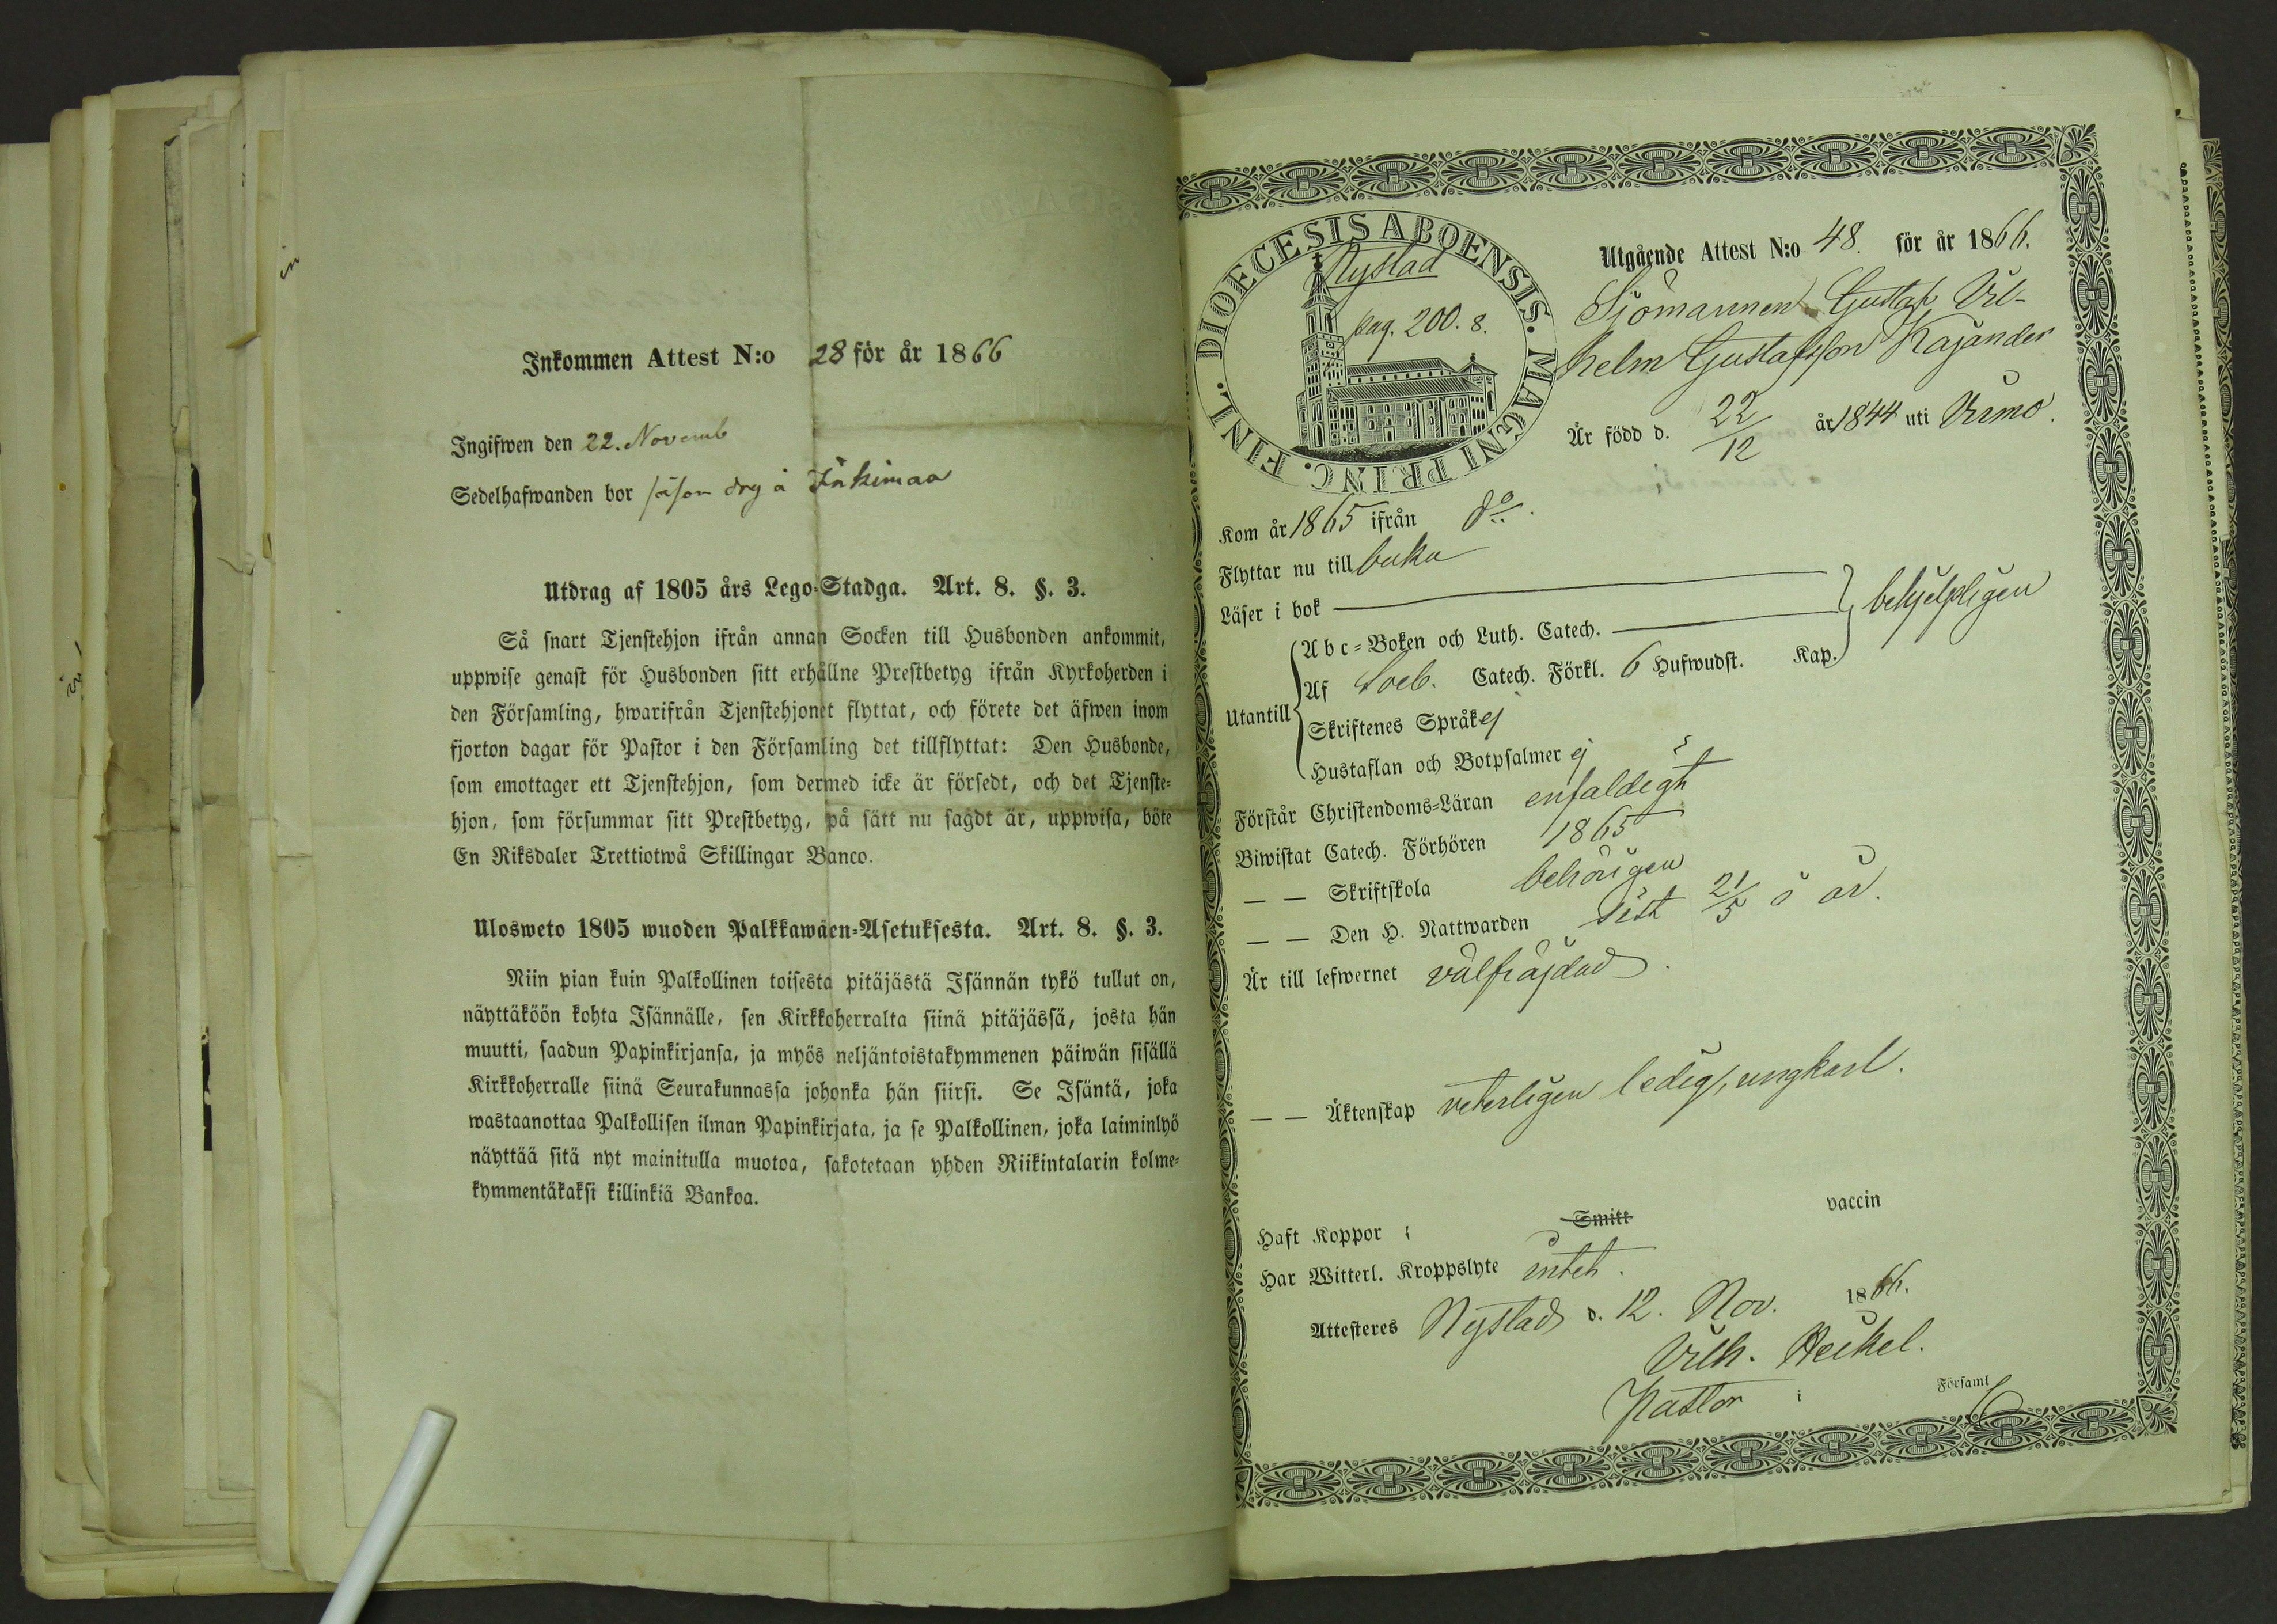 Inkommen Attest N:o 28 för år 1866
Ingifwen den 22. Novemb
Sedelhafwanden bor såsom drg å
Utdrag af 1805 års Lego-Stadga. Art. 8. §. 3.
Så snart Tjenstehjon ifrån annan Socken till Husbonden ankommit,
uppwise genast för Husbonden sitt erhållne Prestbetyg ifrån Kyrkoherden i
den Församling, hwarifrån Tjenstehjonet flyttat, och förete det äfwen inom
fjorton dagar för Pastor i den Församling det tillflyttat: Den Husbonde,
som emottager ett Tjenstehjon, som dermed icke är försedt, och det Tjenste-
hjon, som försummar sitt Prestbetyg, på sätt nu sagdt är, uppwisa, böte
En Riksdaler Trettiotwå Skillingar Banco.
Ulosweto 1805 wuoden Palkkawäen-Asetuksesta. Art. 8. §. 3.
Niin pian kuin Palkollinen toisesta pitäjästä Isännän tykö tullut on,
näyttäköön kohta Isännälle, sen Kirkkoherralta siinä pitäjässä, josta hän
muutti, saadun Papinkirjansa, ja myös neljäntoistakymmenen päiwän sisällä
Kirkkoherralle siinä Seurakunnassa johonka hän siirsi. Se Isäntä, joka
wastaanottaa Palkollisen ilman Papinkirjata, ja se Palkollinen, joka laiminlyö
näyttää sitä nyt mainitulla muotoa, sakotetaan yhden Riikintalarin kolme-
kymmentäkaksi killinkiä Bankoa.
DIOECESIS ABOENSIS. MAGNI PRINC. FINL.
Nystad
pag. 200. 8.
Utgående Attest N:o 48. för år 1866.
Sjömannen Gustaf Vil-
helm Gustafsson Kajander
Är född d. 22/12 år 1844 uti Virmo.
Kom år 1865 ifrån do.
Flyttar nu till baka
Läser i bok
behjelpligen
Abc-Boken och Luth. Catech.
Utantill
Af Soeb. Catech. Förkl. 6 Hufwudst. Kap.
Skriftenes Språk ej
Hustaflan och Botpsalmer ej
Förstår Christendoms-Läran enfaldigt
Biwistat Catech. Förhören 1865
— — Skriftskola behörigen
— — Den H. Nattwarden sist 21/5 i år.
Är till lefwernet välfräjdad.
— — Äktenskap veterligen ledig, ungkarl.
Haft Koppor ; Smitt vaccin
Har Witterl. Kroppslyte intet.
Attesteres Nystad d. 12. Nov. 1866.
Vilh. Heikel.
Pastor i Församl